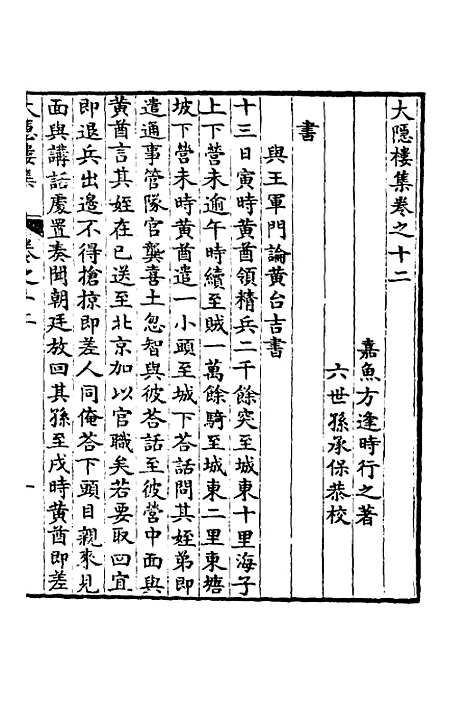 大隱樓集卷之十二
嘉魚方逢時行之著
六世孫承保恭校
書
與王軍門論黃台吉書
十三日寅時黃酋領精兵二千餘突至城東十里海子
上下營未逾午時續至賊一萬餘騎至城東二里東塘
坡下營未時黃酋遣一小頭至城下荅話問其姪弟即
遣通事管隊官龔喜土忽智與彼荅話至彼營中面與
黃酋言其姪在已送至北京加以官職矣若要取回宜
即退兵出邊不得搶掠即差人同俺荅下頭目親來見
面與講話處置奏聞朝廷放回其孫至戌時黃酋即差
大隱樓集 卷之十二 一